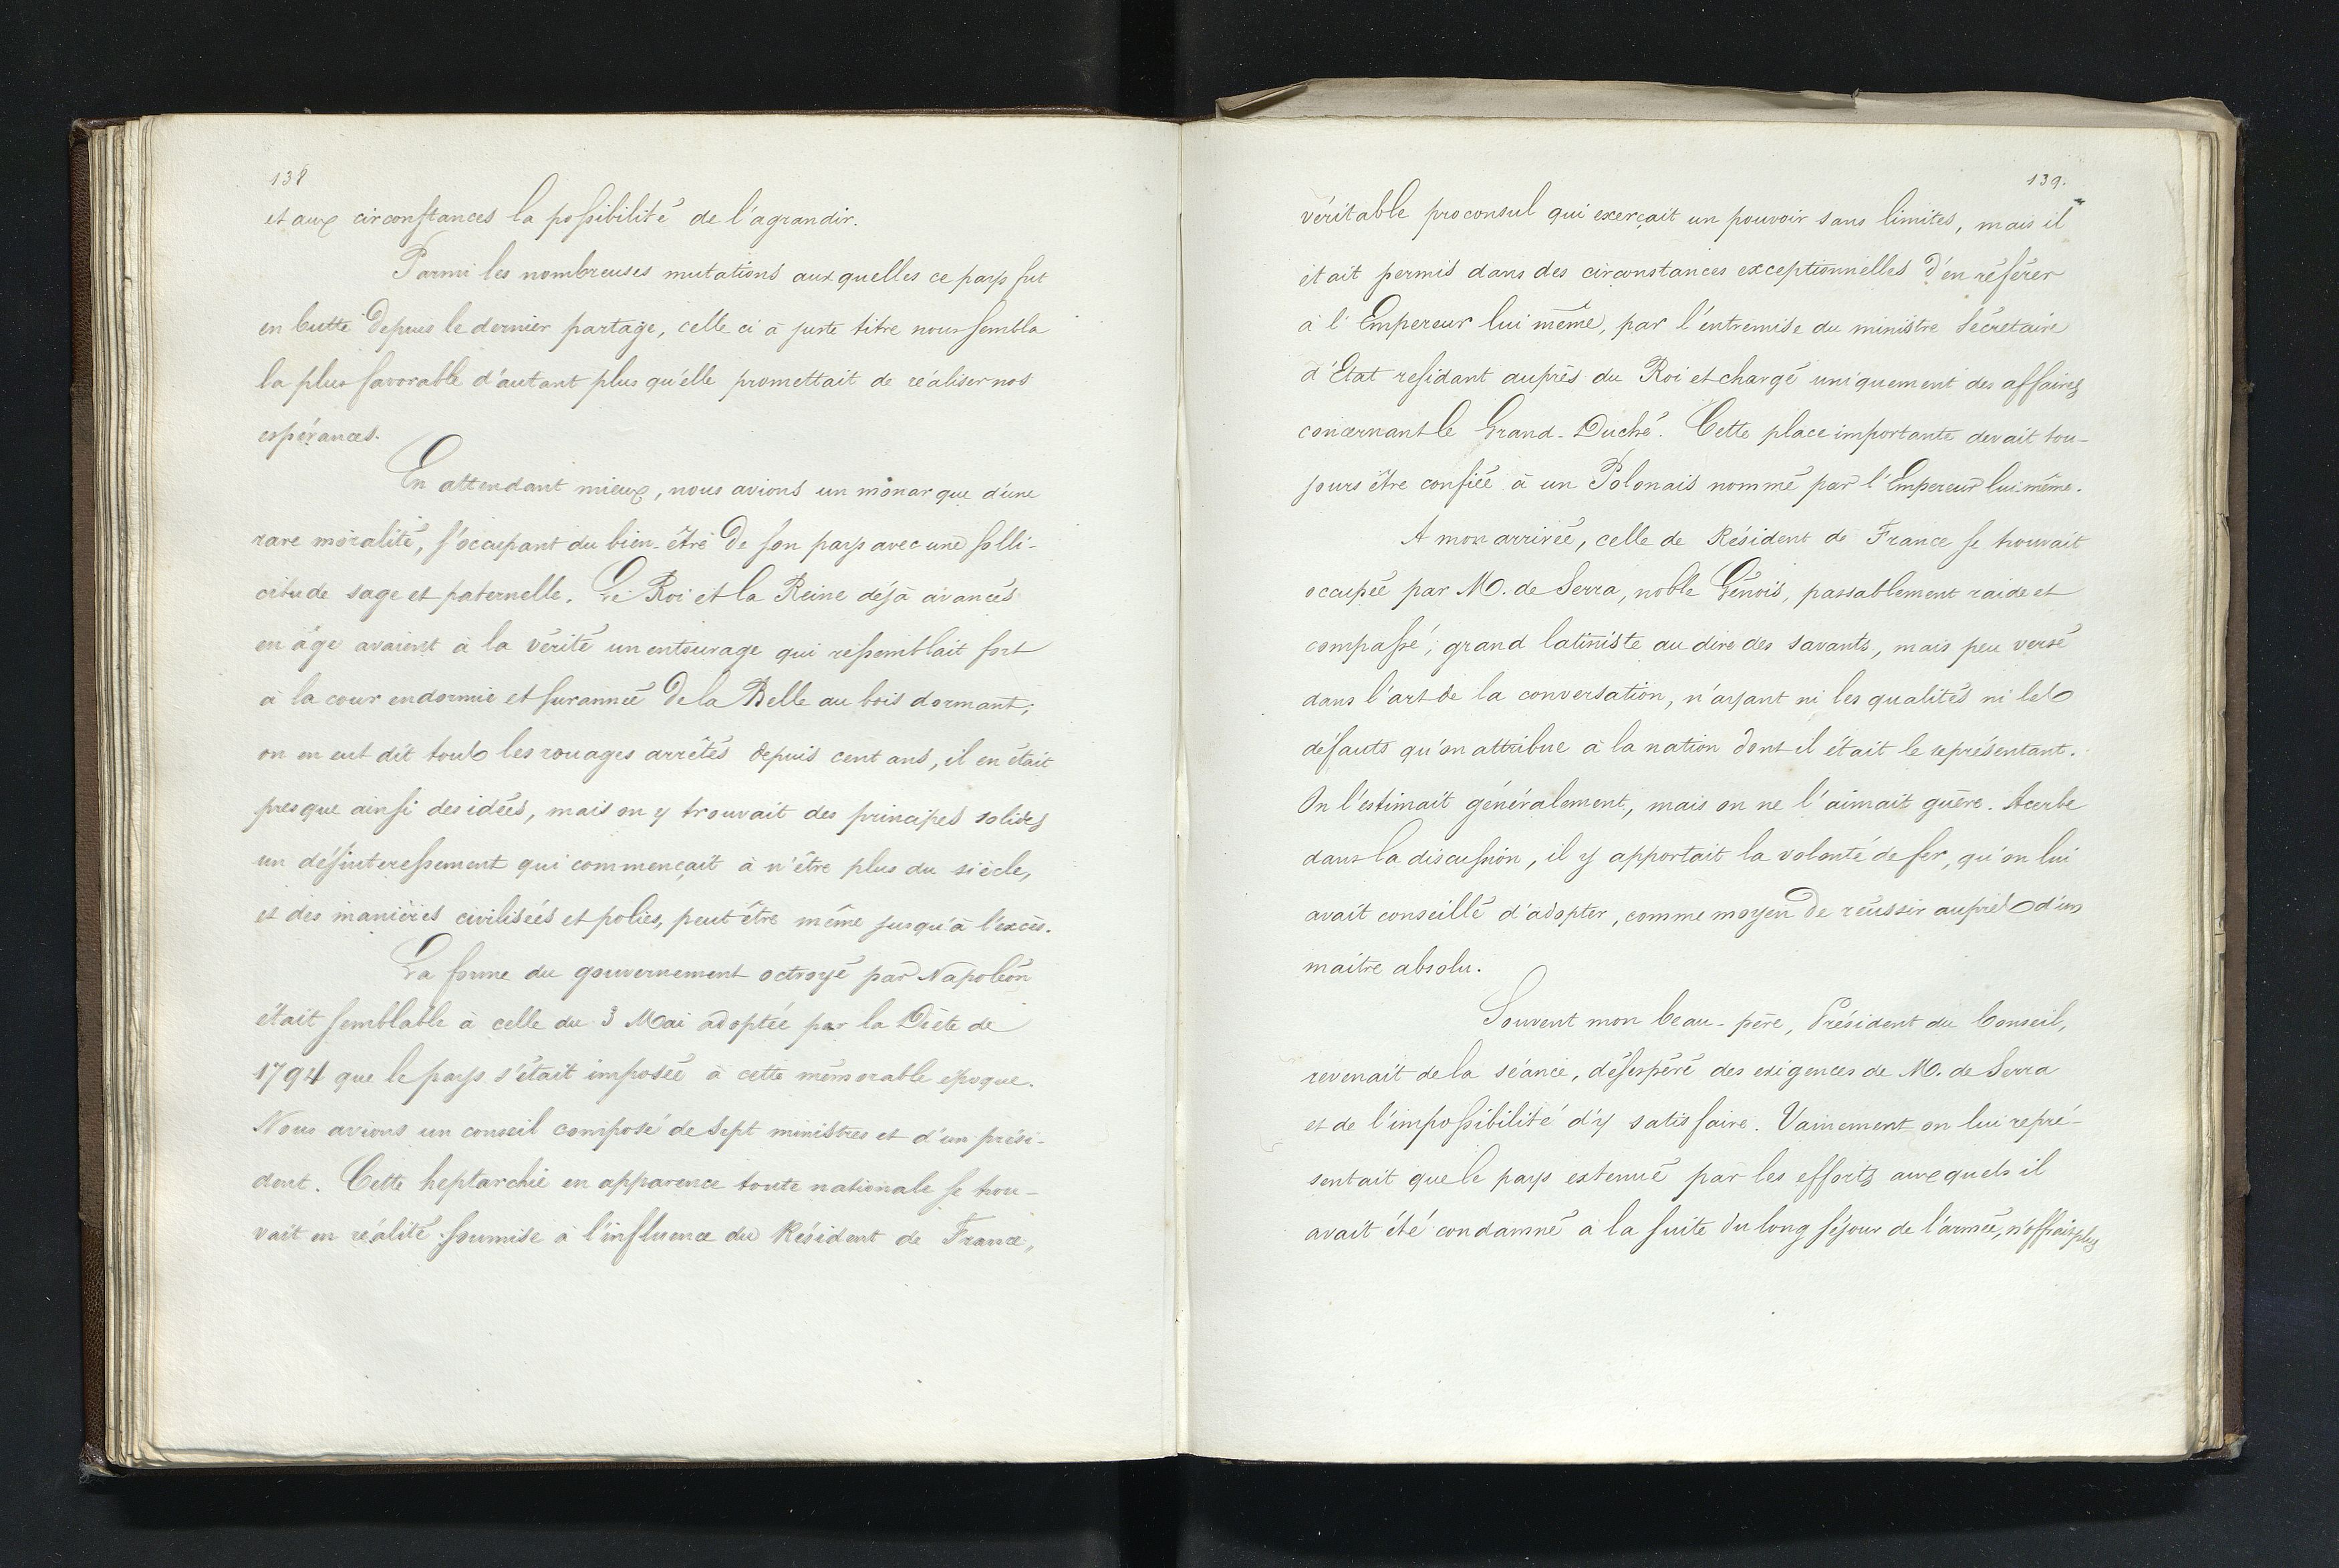 138
et aux circonstances la possibilité de l'agrandir.
Parmi les nombreuses mutations aux quelles ce pays fut
en butte depuis le dernier partage, celle ci à juste titre nous sembla
la plus favorable d'autant plus qu'elle promettait de réaliser nos
espérances.
En attendant mieux, nous avions un monarque d'une
rare moralité, s'occupant du bien-être de son pays avec une solli-
citude sage et paternelle. Le Roi et la Reine déjà avancés
en âge avaient à la vérité un entourage qui ressemblait fort
à la cour endormie et surannée de la Belle au bois dormant;
on en eut dit tous les rouages arrêtés depuis cent ans, il en était
presque ainsi des idées, mais on y trouvait des principes solides
un désinteressement qui commençait à n'être plus du siècle,
et des manières civilisées et polies, peut être même jusqu'à l'excès.
La forme du gouvernement octroyé par Napoléon
était semblable à celle du 3 Mai adoptée par la Diète de
1794 que le pays s'était imposée à cette mémorable époque.
Nous avions un conseil composé de sept ministres et d'un prési-
dent. Cette heptarchie en apparence toute nationale se trou-
vait en réalité soumise à l'influence du Résident de France,
139.
véritable proconsul qui exerçait un pouvoir sans limites, mais il
était permis dans des circonstances exceptionnelles d'en référer
à l'Empereur lui même, par l'entremise du ministre Sécretaire
d'Etat residant auprès du Roi et chargé uniquement des affaires
concernant le Grand-Duché. Cette place importante devait tou-
jours être confiée à un Polonais nommé par l'Empereur lui-même.
A mon arrivée, celle de Résident de France se trouvait
occupée par M. de Serra, noble Génois, passablement raide et
compassé; grand latiniste au dire des savants, mais peu versé
dans l'art de la conversation, n'ayant ni les qualités ni les
défauts qu'on attribue à la nation dont il était le représentant.
On l'estimait généralement, mais on ne l'aimait guère. Acerbe
dans la discussion, il y apportait la volonté de fer, qu'on lui
avait conseillé d'adopter, comme moyen de réussir auprès d'un
maitre absolu.
Souvent mon beau-père, Président du Conseil,
revenait de la séance, désespéré des exigences de M. de Serra
et de l'impossibilité d'y satisfaire. Vainement on lui repré-
sentait que le pays extenué par les efforts auxquels il
avait été condamné à la suite du long séjour de l'armée, n'offrait plus